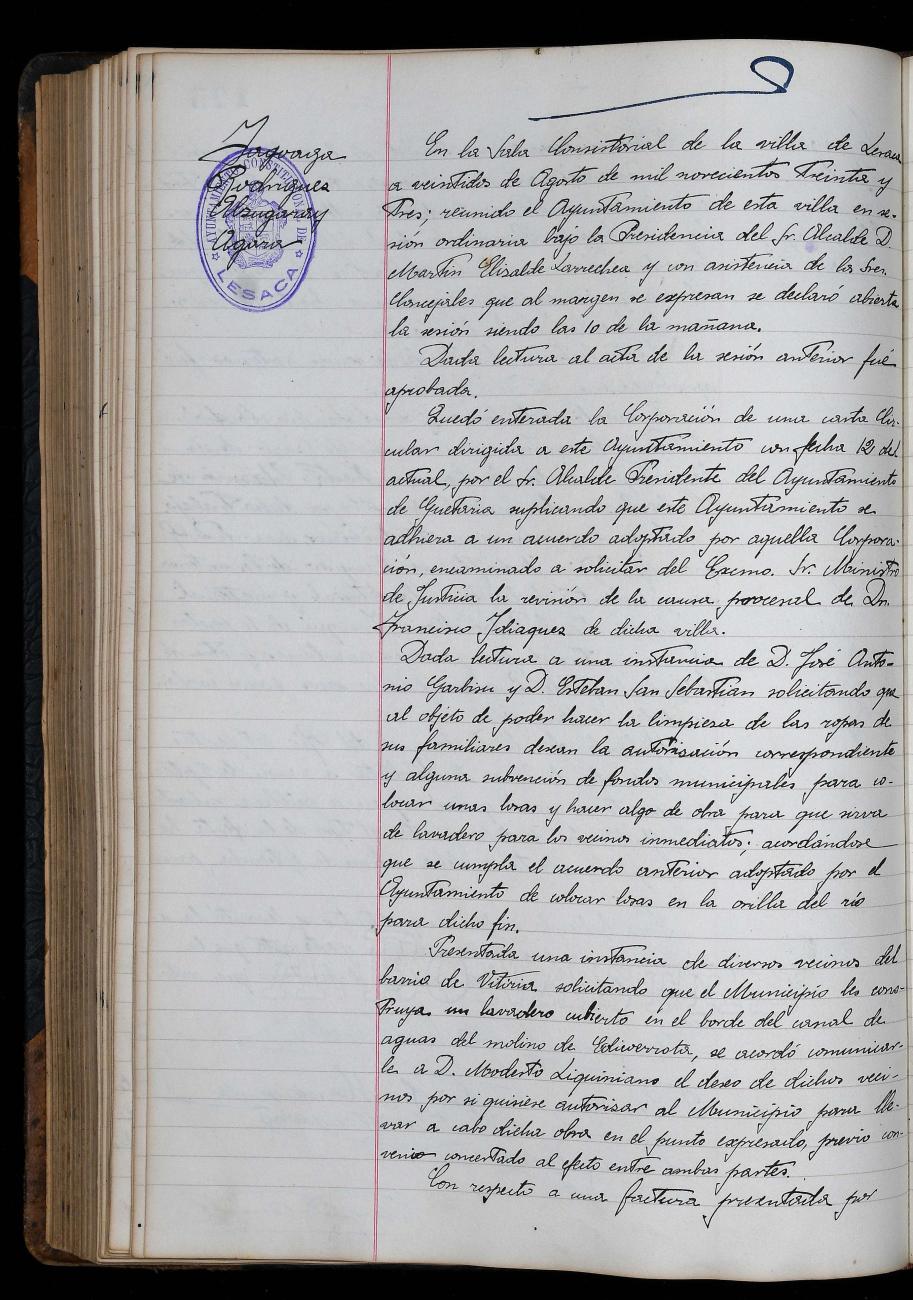 Jagoaga
Rodriguez
Elzugaray
Agara
AYUNTAMIENTO CONSTITUCIONAL DE
LESACA
En la Sala Consistorial de la villa de Lesaca
a veintidos de Agosto de mil novecientos treinta y
tres; reunido el Ayuntamiento de esta villa en se-
sión ordinaria bajo la Presidencia del Sr. Alcalde D.
Martín Elizalde Larrechea y con asistencia de los Sres.
Concejales que al margen se expresan se declaró abierta
la sesión siendo las 10 de la mañana.
Dada lectura al acta de la sesión anterior fué
aprobada.
Quedó enterada la Corporación de una carta Cir-
cular dirigida a este Ayuntamiento con fecha 12 del
actual, por el Sr. Alcalde Presidente del Ayuntamiento
de Guetaria suplicando que este Ayuntamiento se
adhiera a un acuerdo adoptado por aquella Corpora-
ción, encaminado a solicitar del Excmo. Sr. Ministro
de Justicia la revisión de la causa procesal de Dn.
Francisco Idiaquez de dicha villa.
Dada lectura a una instancia de D. José Anto-
nio Garbisu y D. Esteban San Sebastian solicitando que
al objeto de poder hacer la limpieza de las ropas de
sus familiares desean la autorisación correspondiente
y alguna subvención de fondos municipales para co-
locar unas losas y hacer algo de obra para que sirva
de lavadero para los vecinos inmediatos; acordándose
que se cumpla el acuerdo anterior adoptado por el
Ayuntamiento de colocar losas en la orilla del río
para dicho fin.
Presentada una instancia de diversos vecinos del
barrio de Vitiria solicitando que el Municipio les cons-
truya un lavadero cubierto en el borde del canal de
aguas del molino de Echverrota, se acordó comunicar-
le a D. Modesto Liquiniano el deseo de dichos veci-
nos por si quisiese autorizar al Municipio para lle-
var a cabo dicha obra en el punto expresado, previo con-
venio concertado al efecto entre ambas partes.
Con respecto a una factura presentada por